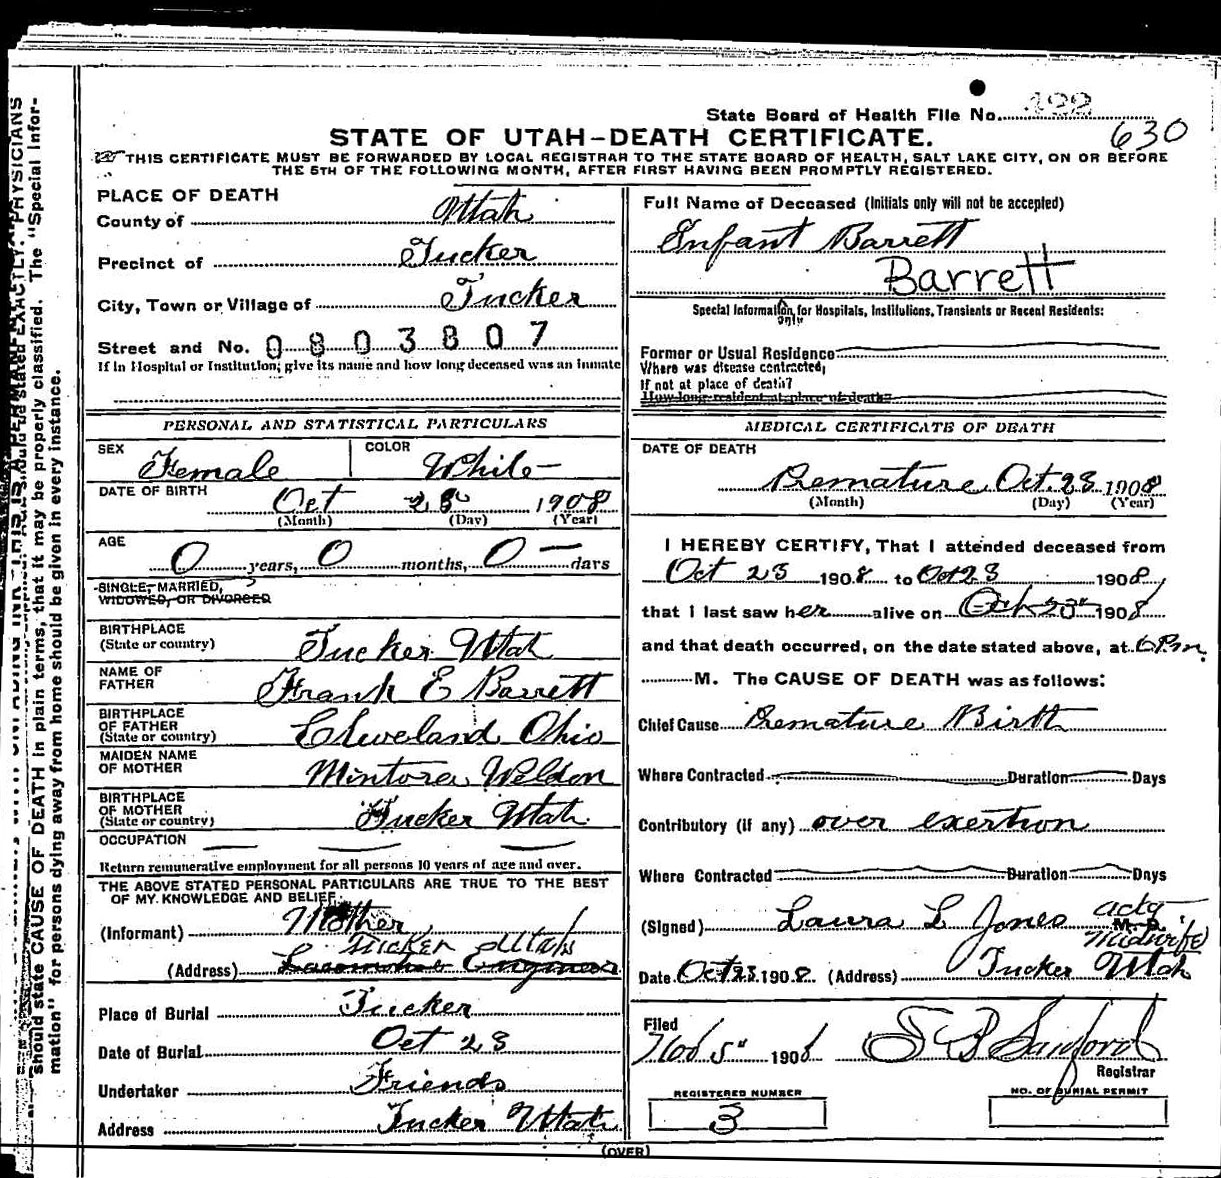 State Board of Health File No. 422
630
STATE OF UTAH-DEATH CERTIFICATE.
THIS CERTIFICATE MUST BE FORWARDED BY LOCAL REGISTRAR TO THE STATE BOARD OF HEALTH, SALT LAKE CITY, ON OR BEFORE
THE 5TH OF THE FOLLOWING MONTH, AFTER FIRST HAVING BEEN PROMPTLY REGISTERED.
PLACE OF DEATH
County of Utah
Precinct of Tucker
City, Town or Village of Tucker
Street and No. 0803807
If in Hospital or Institution; give its name and how long deceased was an inmate
PERSONAL AND STATISTICAL PARTICULARS
SEX Female COLOR White
DATE OF BIRTH Oct 23 1908
(Month) (Day) (Year)
AGE 0 years, 0 months, 0 days
SINGLE, MARRIED,
WIDOWED, OR DIVORCED
BIRTHPLACE
(State or country) Tucker Utah
NAME OF
FATHER Frank E Barrett
BIRTHPLACE
OF FATHER
(State or country) Cleveland Ohio
MAIDEN NAME
OF MOTHER Mintora Weldon
BIRTHPLACE
OF MOTHER
(State or country) Tucker Utah
OCCUPATION
Return remunerative employment for all persons 10 years of age and over.
THE ABOVE STATED PERSONAL PARTICULARS ARE TRUE TO THE BEST
OF MY KNOWLEDGE AND BELIEF
(Informant) Mother
Tucker Utah
(Address) Locomotive Engineer
Place of Burial Tucker
Date of Burial Oct 23
Undertaker Friends
Address Tucker Utah
Full Name of Deceased (Initials only will not be accepted)
Infant Barrett
Barrett
Special Information only for Hospitals, Institutions, Transients or Recent Residents:
Former or Usual Residence
Where was disease contracted,
If not at place of death?
How long resident at place of death
MEDICAL CERTIFICATE OF DEATH
DATE OF DEATH
Premature Oct 23 1908
(Month) (Day) (Year)
I HEREBY CERTIFY, That I attended deceased from
Oct 23 1908 to Oct 23 1908
that I last saw her alive on Oct 23" 1908
and that death occurred, on the date stated above, at 6 P.m.
M. The CAUSE OF DEATH was as follows:
Chief Cause Premature Birth
Where Contracted Duration Days
Contributory (if any) over exertion
Where Contracted Duration Days
(Signed) Laura L Jones actg
M. D.
Midwife
Date Oct 23 1908 (Address) Tucker Utah
Filed
Nov 5" 1908 Registrar
REGISTERED NUMBER
3
NO. OF BURIAL PERMIT
(OVER)
should state CAUSE OF DEATH in plain terms, that it may be properly classified. The "Special Infor-
mation" for persons dying away from home should be given in every instance.